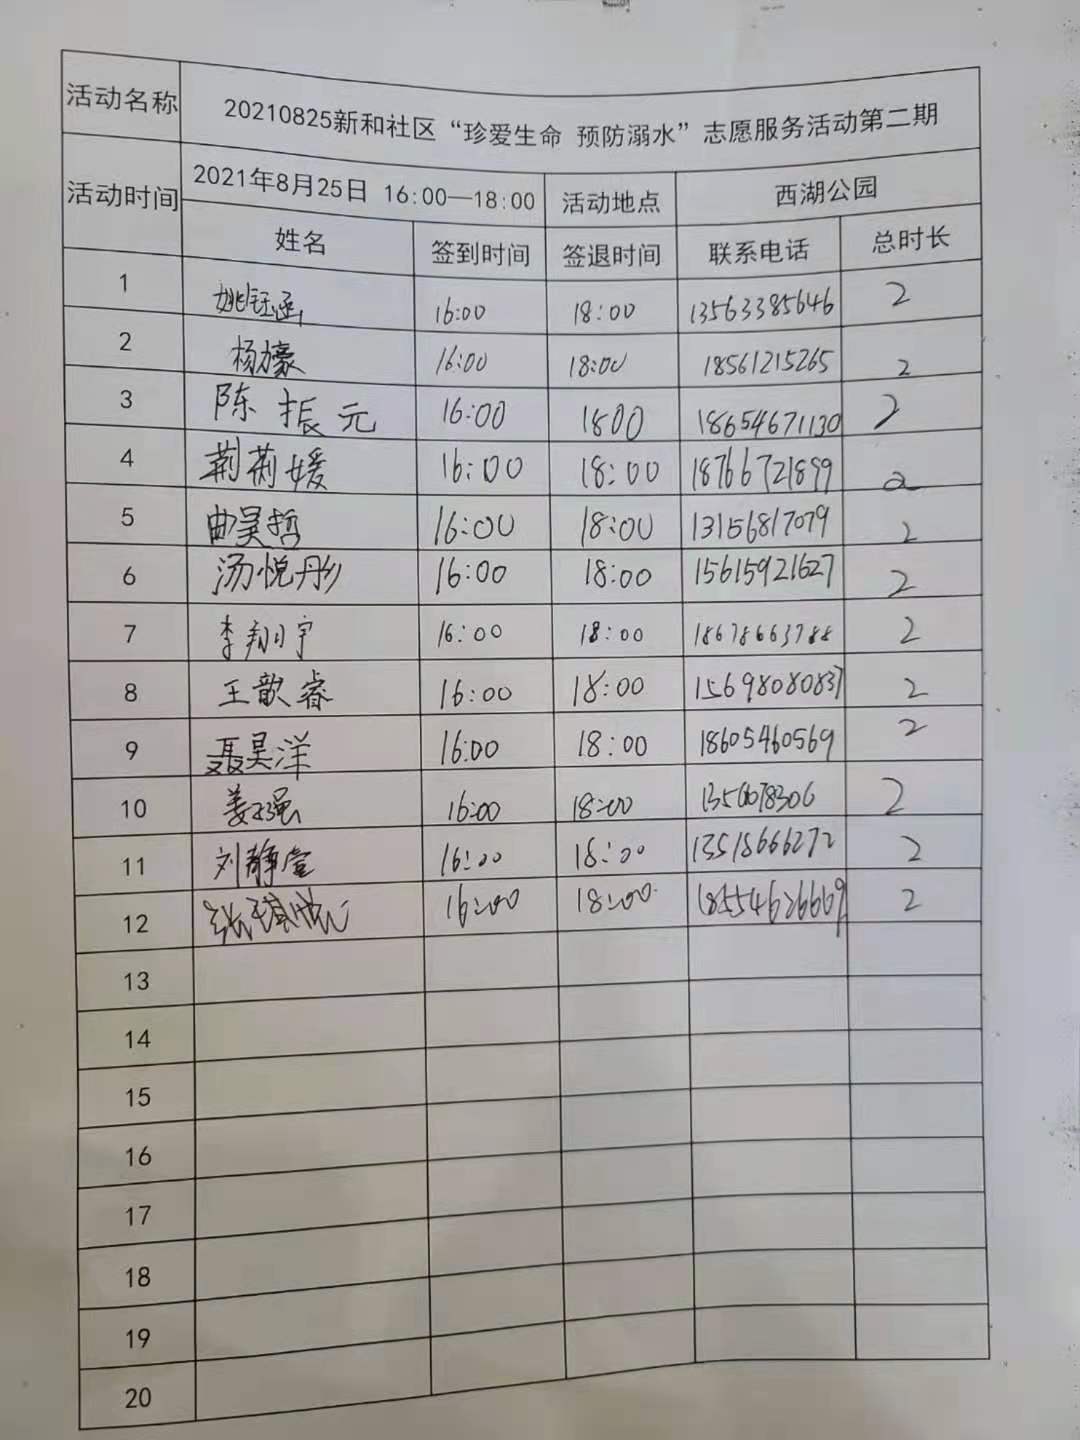 活动名称 20210825新和社区“珍爱生命 预防溺水”志愿服务活动第二期
活动时间 2021年8月25日 16:00—18:00 活动地点 西湖公园
姓名 签到时间 签退时间 联系电话 总时长
1 姚钰涵 16:00 18:00 13563385646 2
2 杨濠 16:00 18:00 18561215265 2
3 陈振元 16:00 1800 18654671130 2
4 荆莉媛 16:00 18:00 18766721899 2
5 曲昊哲 16:00 18:00 13156817079 2
6 汤悦彤 16:00 18:00 15615921627 2
7 李翔宇 16:00 18:00 18678663788 2
8 王歆睿 16:00 18:00 15698080837 2
9 聂昊洋 16:00 18:00 18605460569 2
10 姜强 16:00 18:00 2
11 刘静萱 16:00 18:00 13518666272 2
12 张 16:00 18:00 18554626669 2
13
14
15
16
17
18
19
20